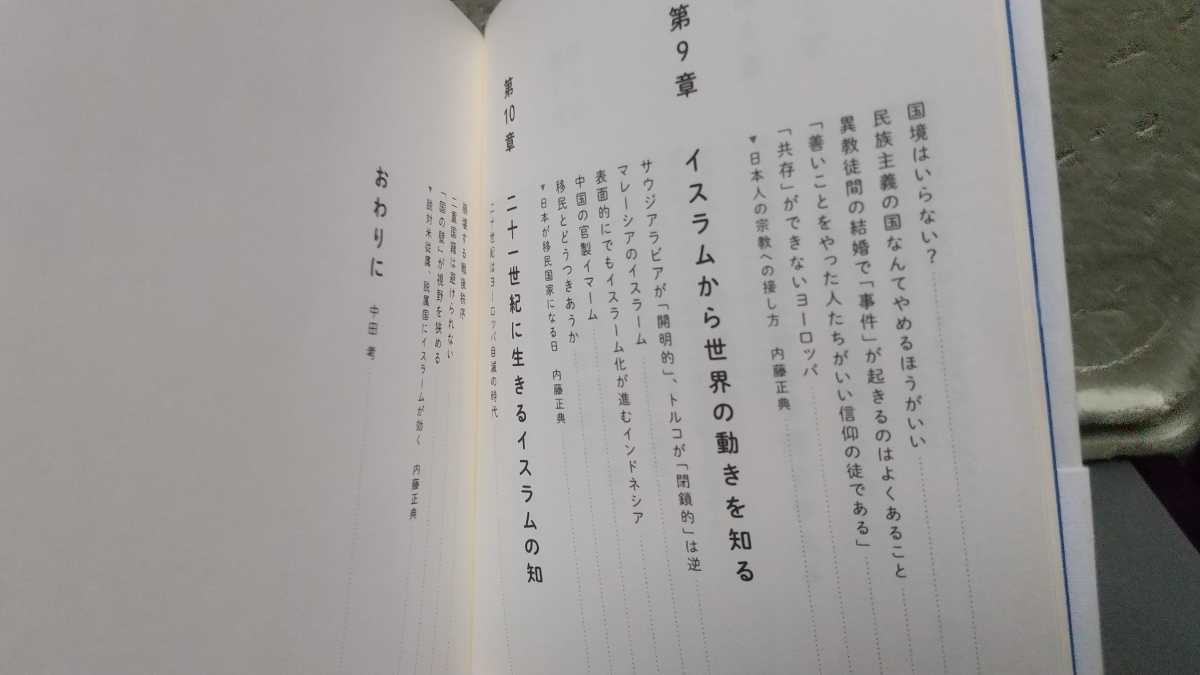 国境はいらない？
民族主義の国なんてやめるほうがいい
異教徒間の結婚で「事件」が起きるのはよくあること
「善いことをやった人たちがいい信仰の徒である」
「共存」ができないヨーロッパ
▼日本人の宗教への接し方　内藤正典
第9章　イスラムから世界の動きを知る
サウジアラビアが「開明的」、トルコが「閉鎖的」は逆
マレーシアのイスラーム
表面的にでもイスラーム化が進むインドネシア
中国の官製イマーム
移民とどうつきあうか
▼日本が移民国家になる日　内藤正典
第10章　二十一世紀に生きるイスラムの知
二十世紀はヨーロッパ自滅の時代
崩壊する戦後秩序
二重国籍は避けられない
「国の壁」が視野を狭める
▼脱対米従属、脱属国にイスラームが効く　内藤正典
おわりに　中田 考